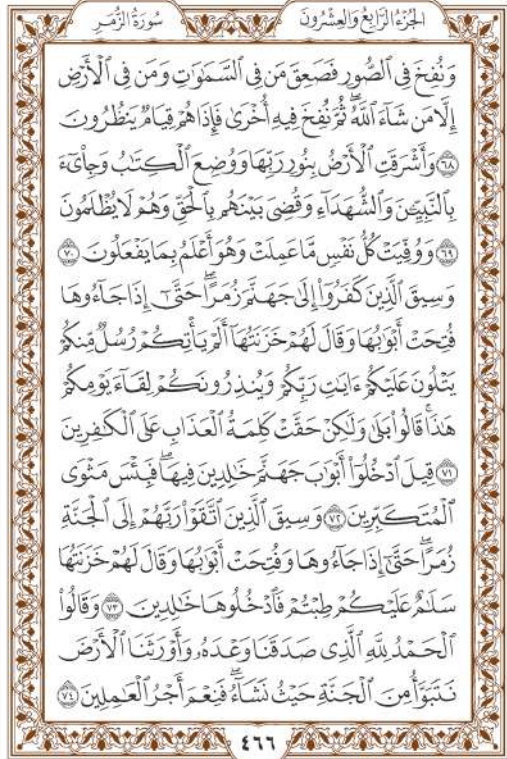 الجُزْءُ الرَّابِعُ وَالعِشْرُونَ
سُورَةُ الزُّمَر
وَنُفِخَ فِى ٱلصُّورِ فَصَعِقَ مَن فِى ٱلسَّمَٰوَٰتِ وَمَن فِى ٱلْأَرْضِ
إِلَّا مَن شَآءَ ٱللَّهُۖ ثُمَّ نُفِخَ فِيهِ أُخْرَىٰ فَإِذَا هُمْ قِيَامٌ يَنظُرُونَ
٦٨ وَأَشْرَقَتِ ٱلْأَرْضُ بِنُورِ رَبِّهَا وَوُضِعَ ٱلْكِتَٰبُ وَجِا۟ىٓءَ
بِٱلنَّبِيِّـۧنَ وَٱلشُّهَدَآءِ وَقُضِىَ بَيْنَهُم بِٱلْحَقِّ وَهُمْ لَا يُظْلَمُونَ
٦٩ وَوُفِّيَتْ كُلُّ نَفْسٍ مَّا عَمِلَتْ وَهُوَ أَعْلَمُ بِمَا يَفْعَلُونَ ٧٠
وَسِيقَ ٱلَّذِينَ كَفَرُوٓا۟ إِلَىٰ جَهَنَّمَ زُمَرًاۖ حَتَّىٰٓ إِذَا جَآءُوهَا
فُتِحَتْ أَبْوَٰبُهَا وَقَالَ لَهُمْ خَزَنَتُهَآ أَلَمْ يَأْتِكُمْ رُسُلٌ مِّنكُمْ
يَتْلُونَ عَلَيْكُمْ ءَايَٰتِ رَبِّكُمْ وَيُنذِرُونَكُمْ لِقَآءَ يَوْمِكُمْ
هَٰذَاۚ قَالُوا۟ بَلَىٰ وَلَٰكِنْ حَقَّتْ كَلِمَةُ ٱلْعَذَابِ عَلَى ٱلْكَٰفِرِينَ
٧١ قِيلَ ٱدْخُلُوٓا۟ أَبْوَٰبَ جَهَنَّمَ خَٰلِدِينَ فِيهَاۖ فَبِئْسَ مَثْوَى
ٱلْمُتَكَبِّرِينَ ٧٢ وَسِيقَ ٱلَّذِينَ ٱتَّقَوْا۟ رَبَّهُمْ إِلَى ٱلْجَنَّةِ
زُمَرًاۖ حَتَّىٰٓ إِذَا جَآءُوهَا وَفُتِحَتْ أَبْوَٰبُهَا وَقَالَ لَهُمْ خَزَنَتُهَا
سَلَٰمٌ عَلَيْكُمْ طِبْتُمْ فَٱدْخُلُوهَا خَٰلِدِينَ ٧٣ وَقَالُوا۟
ٱلْحَمْدُ لِلَّهِ ٱلَّذِى صَدَقَنَا وَعْدَهُۥ وَأَوْرَثَنَا ٱلْأَرْضَ
نَتَبَوَّأُ مِنَ ٱلْجَنَّةِ حَيْثُ نَشَآءُۖ فَنِعْمَ أَجْرُ ٱلْعَٰمِلِينَ ٧٤
٤٦٦